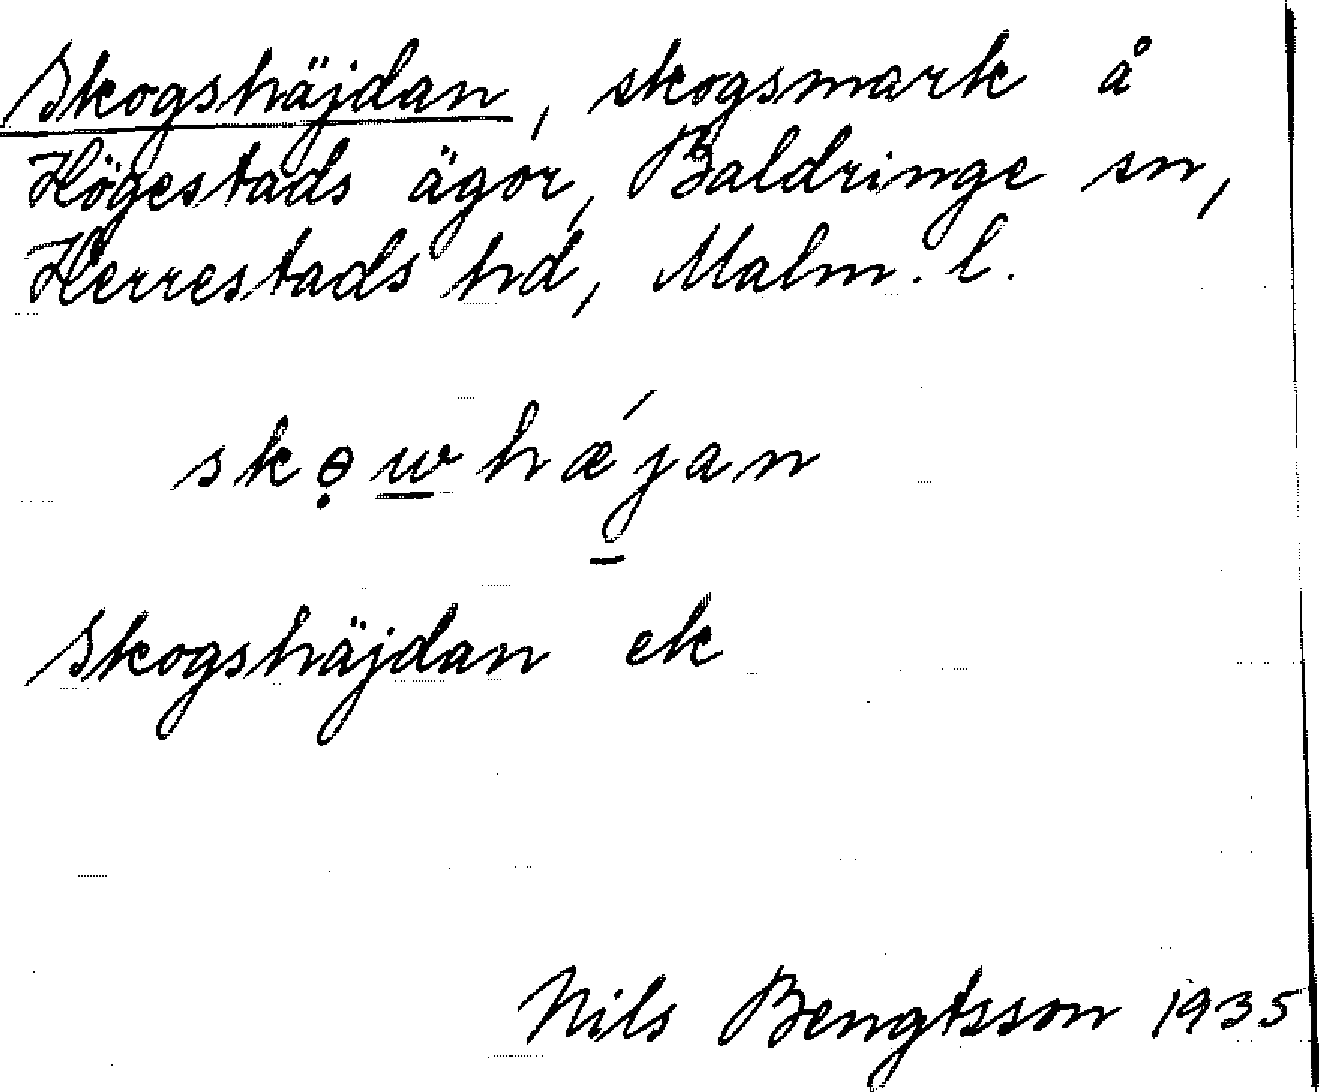 Skogshäjdan, skogsmark å
Högestads ägor, Baldringe sn,
Herrestads hd, Malm. l.
skɵ̣w̲hǽj̲an
Skogshäjdan ek
Nils Bengtsson 1935